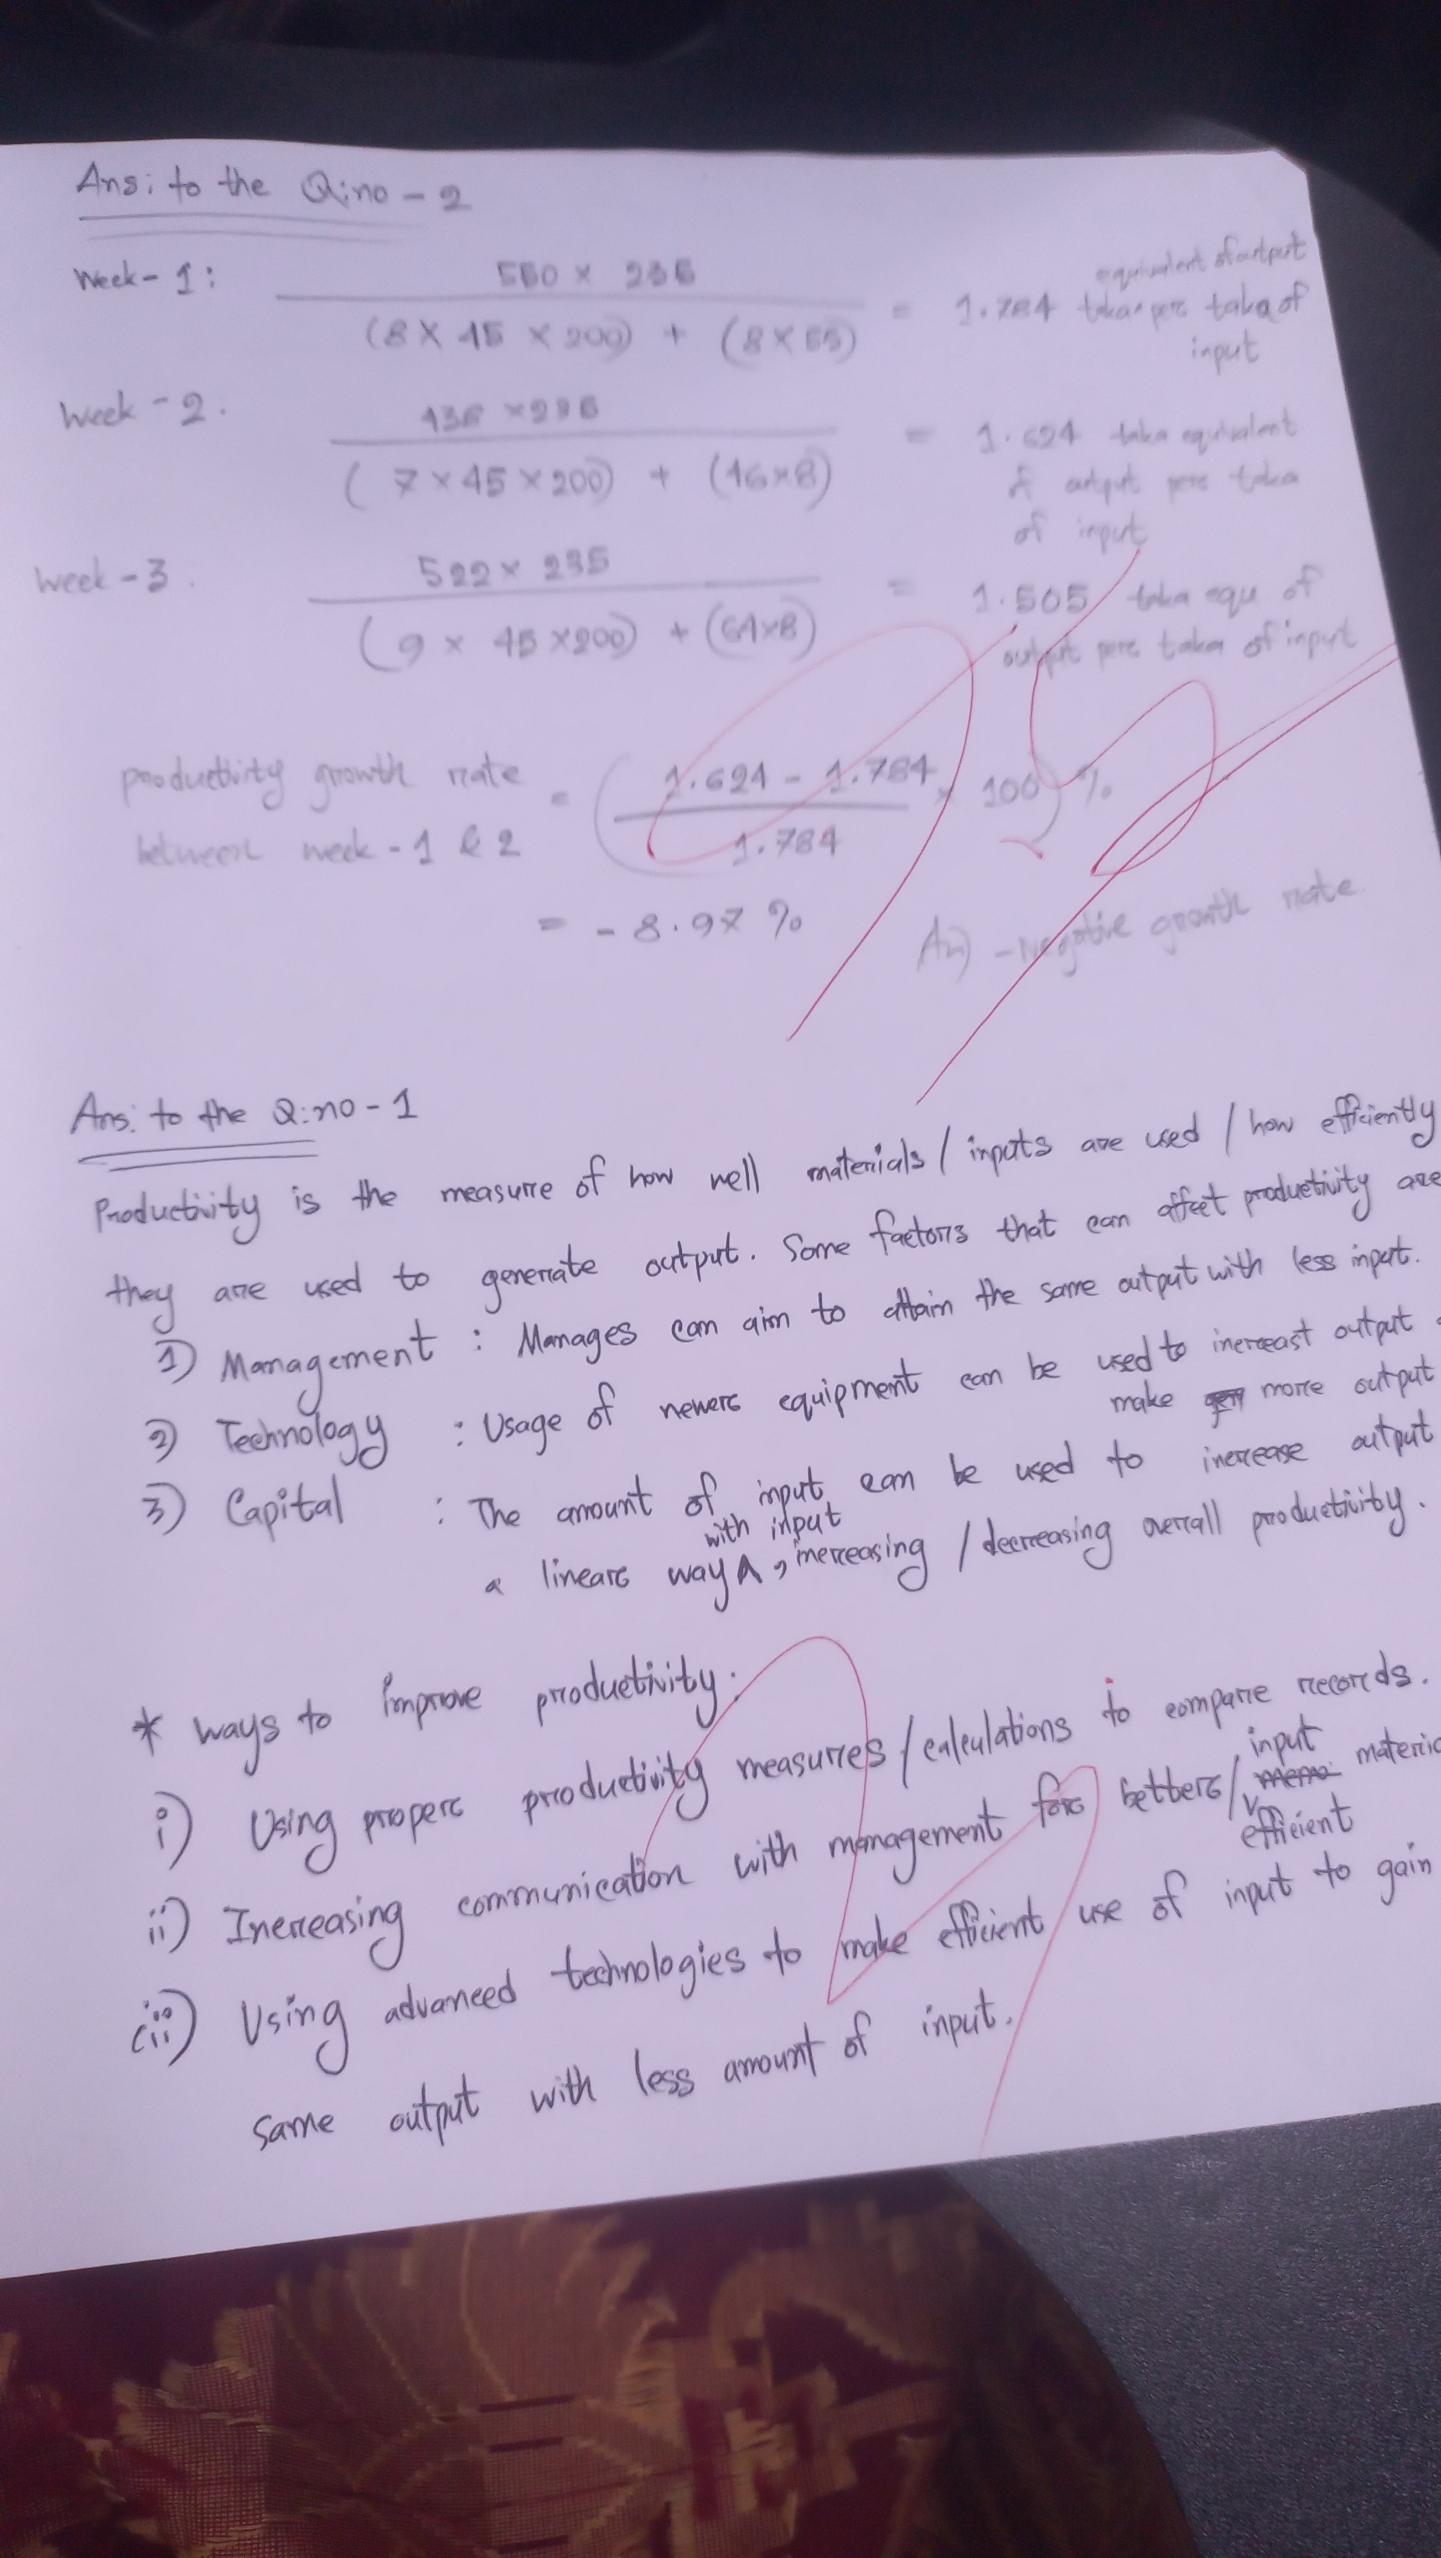 Ans: to the Q:no - 2
Week - 1:
550 × 235
(8 × 45 × 200) + (8×55)
= 1.784 taka per taka of
equivalent of output
input
Week - 2.
436 × 235
(7 × 45 × 200) + (46×8)
= 1.624 taka equivalent
of output per taka
of input
Week - 3.
522 × 235
(9 × 45 × 200) + (64×8)
= 1.505 taka equ of
output per taka of input
productivity growth rate
between week - 1 & 2
= (1.624 - 1.784
1.784
× 100) %
= - 8.97 %
An) - Negative growth rate.
Ans: to the Q:no - 1
Productivity is the measure of how well materials / inputs are used / how efficiently
they are used to generate output. Some factors that can affect productivity are
1) Management : Manages can aim to attain the same output with less input.
2) Technology : Usage of newer equipment can be used to increast output
make more output
3) Capital : The amount of input can be used to increase output
with input
a linear way ∧, increasing / decreasing overall productivity.
* ways to improve productivity:
i) Using proper productivity measures / calculations to compare records.
input
ii) Increasing communication with management for better /
efficient
iii) Using advanced technologies to make efficient use of input to gain
same output with less amount of input.